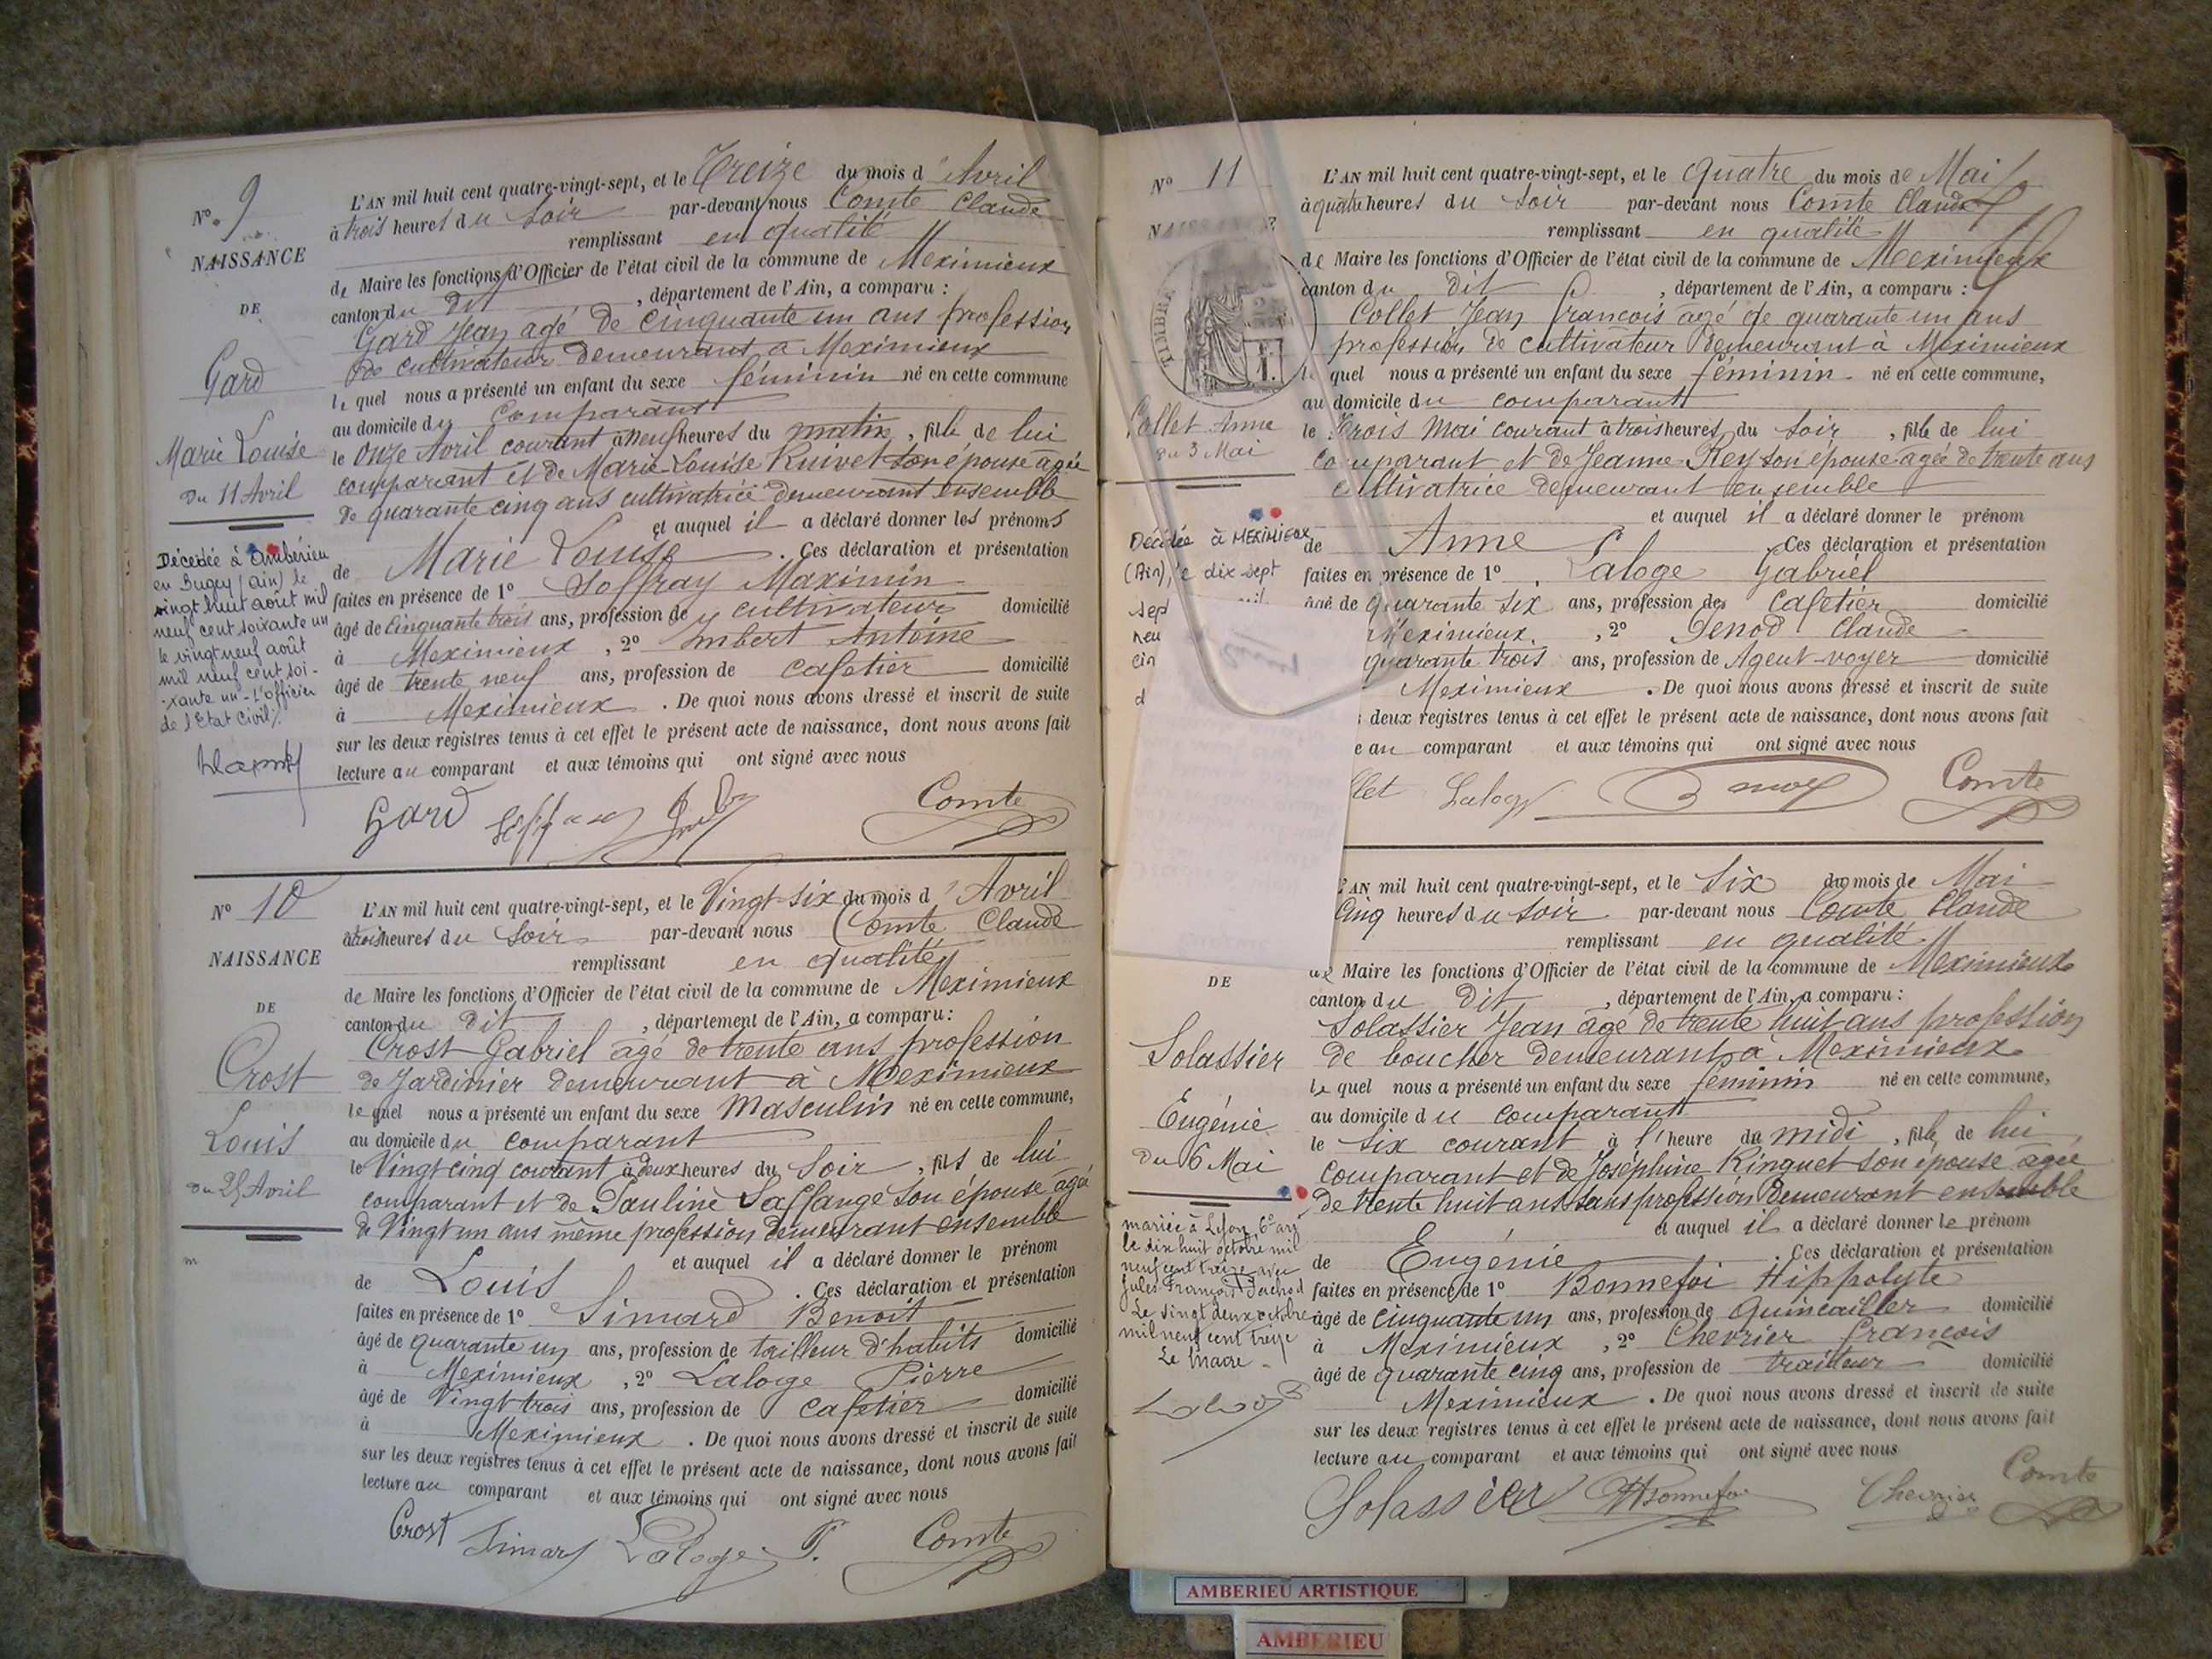 N° 9
NAISSANCE
DE
Gard
Marie Louise
Du 11 Avril
Décédée à Ambérieu
en Bugey (ain) le
vingt huit août mil
neuf cent soixante un
le vingt neuf août
mil neuf cent soi-
-xante un - l'officier
de l'Etat Civil /.
L'AN mil huit cent quatre-vingt-sept, et le Treize du mois d'Avril
à trois heures du Soir par-devant nous Comte Claude
remplissant en qualité
de Maire les fonctions d'Officier de l'état civil de la commune de Meximieux
canton du dit, département de l'Ain, a comparu :
Gard Jean agé de cinquante un ans profession
de cultivateur demeurant a Meximieux
le quel nous a présenté un enfant du sexe féminin né en cette commune
au domicile du Comparant
le Onze Avril courant à neuf heures du matin, fille de lui
comparant et de Marie-Louise Ruivet son épouse agée
de quarante cinq ans cultivatrice demeurant ensemble
et auquel il a déclaré donner les prénoms
de Marie Louise. Ces déclaration et présentation
faites en présence de 1° Soffray Maximin
âgé de Cinquante trois ans, profession de cultivateur domicilié
à Meximieux, 2° Imbert Antoine
âgé de trente neuf ans, profession de cafetier domicilié
à Meximieux. De quoi nous avons dressé et inscrit de suite
sur les deux registres tenus à cet effet le présent acte de naissance, dont nous avons fait
lecture au comparant et aux témoins qui ont signé avec nous
Gard Comte
N° 10
NAISSANCE
DE
Crost
Louis
Du 25 Avril
L'AN mil huit cent quatre-vingt-sept, et le Vingt-six du mois d'Avril
à trois heures du Soir par-devant nous Comte Claude
remplissant en qualité
de Maire les fonctions d'Officier de l'état civil de la commune de Meximieux
canton du dit, département de l'Ain, a comparu :
Crost Gabriel agé de trente ans profession
de Jardinier demeurant à Meximieux
le quel nous a présenté un enfant du sexe Masculin né en cette commune,
au domicile du comparant
le Vingt cinq courant à deux heures du Soir, fils de lui
comparant et de Pauline Saffange son épouse agée
de Vingt un ans même profession demeurant ensemble
et auquel il a déclaré donner le prénom
de Louis. Ces déclaration et présentation
faites en présence de 1° Simard Benoit
âgé de quarante un ans, profession de tailleur d'habits domicilié
à Meximieux, 2° Laloge Pierre
âgé de Vingt trois ans, profession de Cafetier domicilié
à Meximieux. De quoi nous avons dressé et inscrit de suite
sur les deux registres tenus à cet effet le présent acte de naissance, dont nous avons fait
lecture au comparant et aux témoins qui ont signé avec nous
Crost Simard Laloge P. Comte
N° 11
TIMBRE
Collet Anne
du 3 Mai
Décédée à MEXIMIEUX
(Ain), le dix-sept
sep
neu
cin
d
L'AN mil huit cent quatre-vingt-sept, et le Quatre du mois de Mai
à quatre heures du Soir par-devant nous Comte Claude
remplissant en qualité
de Maire les fonctions d'Officier de l'état civil de la commune de Meximieux
canton du dit, département de l'Ain, a comparu :
Collet Jean francois agé de quarante un ans
profession de cultivateur demeurant à Meximieux
le quel nous a présenté un enfant du sexe féminin né en cette commune,
au domicile du comparant
le Trois Mai courant à trois heures du Soir, fille de lui
comparant et de Jeanne Rey son épouse agée de trente ans
cultivatrice demeurant ensemble
et auquel il a déclaré donner le prénom
de Anne. Ces déclaration et présentation
faites en présence de 1° Laloge Gabriel
âgé de quarante six ans, profession de Cafetier domicilié
Meximieux, 2° Genod Claude
quarante trois ans, profession de Agent-voyer domicilié
Meximieux. De quoi nous avons dressé et inscrit de suite
deux registres tenus à cet effet le présent acte de naissance, dont nous avons fait
e au comparant et aux témoins qui ont signé avec nous
llet Laloge Comte
DE
Solassier
Eugénie
Du 6 Mai
mariée à Lyon 6e arr
le dix huit octobre mil
neuf cent treize avec
Jules François
Le vingt deux octobre
mil neuf cent treize
Le Maire
L'AN mil huit cent quatre-vingt-sept, et le Six du mois de Mai
Cinq heures du Soir par-devant nous Comte Claude
remplissant en qualité
de Maire les fonctions d'Officier de l'état civil de la commune de Meximieux
canton du dit, département de l'Ain, a comparu :
Solassier Jean âgé de trente huit ans profession
de boucher demeurant à Meximieux
le quel nous a présenté un enfant du sexe féminin né en cette commune,
au domicile du comparant
le Six courant à l'heure de midi, fille de lui
comparant et de Joséphine Ringuet son épouse agée
de trente huit ans sans profession demeurant ensemble
et auquel il a déclaré donner le prénom
de Eugénie. Ces déclaration et présentation
faites en présence de 1° Bonnefoi Hippolyte
âgé de Cinquante un ans, profession de Quincailler domicilié
à Meximieux, 2° Chevrier françois
âgé de quarante cinq ans, profession de traiteur domicilié
Meximieux. De quoi nous avons dressé et inscrit de suite
sur les deux registres tenus à cet effet le présent acte de naissance, dont nous avons fait
lecture au comparant et aux témoins qui ont signé avec nous
Solassier HBonnefoi Chevrier Comte
AMBERIEU ARTISTIQUE
AMBERIEU